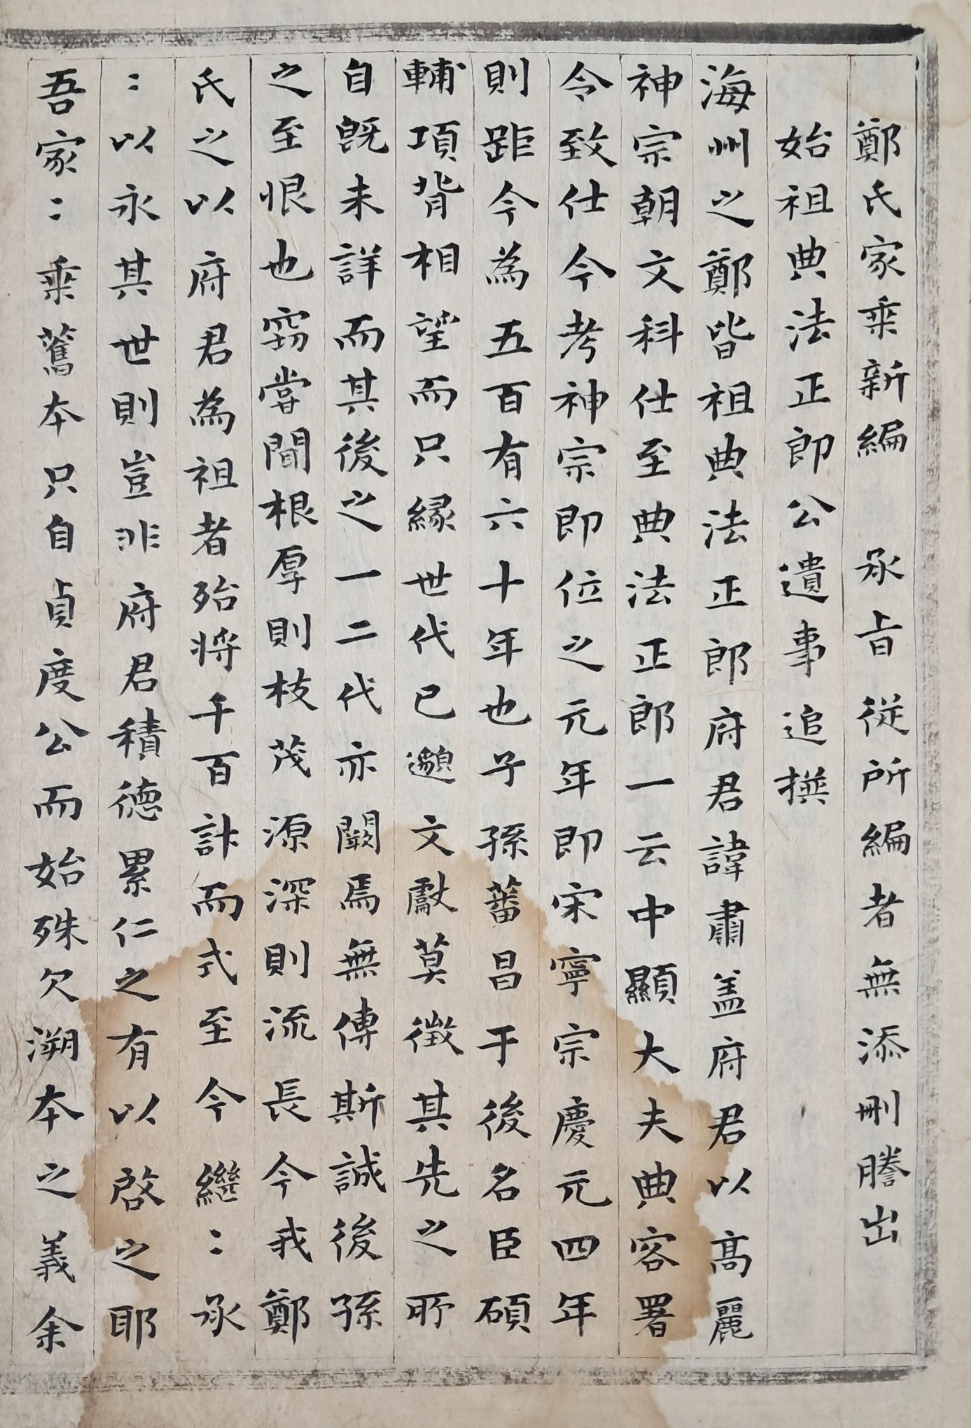 鄭氏家乗新編 承旨從所編者無添刪謄出
始祖典法正郎公遺事追撰
海州之鄭皆祖典法正郎府君諱肅盖府君以高麗
神宗朝文科仕至典法正郎一云中顯大夫典客署
令致仕今考神宗即位之元年即宋寧宗慶元四年
則距今為五百有六十年也子孫蕃昌于後名臣碩
輔項背相望而只縁世代已邈文獻莫徴其先之所
自旣未詳而其後之一二代亦闕焉無傳斯誠後孫
之至恨也窃嘗聞根厚則枝茂源深則流長今我鄭
氏之以府君為祖者殆將千百計而式至今繼：承
：以永其世則豈非府君積德累仁之有以啓之耶
吾家：乗舊本只自貞度公而始殊欠溯本之義余